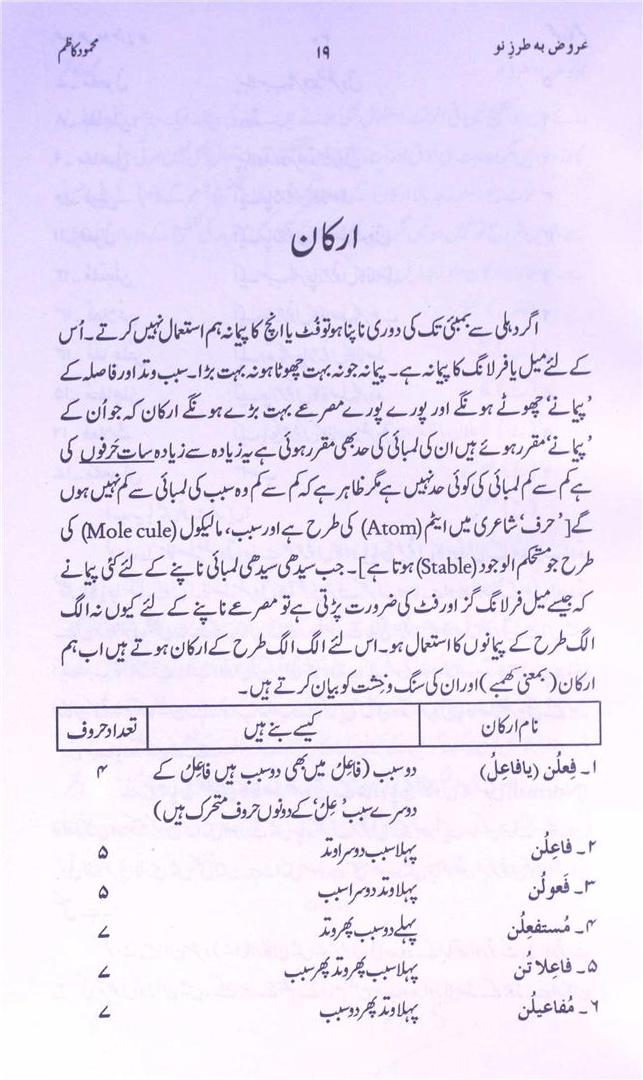 عروض بہ طرزِ نو ۱۹ محمود کاظم
ارکان
اگر دہلی سے بمبئی تک کی دوری ناپنا ہو تو فٹ یا انچ کا پیمانہ ہم استعمال نہیں کرتے۔ اُس
کے لئے میل یا فرلانگ کا پیمانہ ہے۔ پیمانہ جو نہ بہت چھوٹا ہو نہ بہت بڑا۔ سبب وتد اور فاصلہ کے
’پیمانے‘ چھوٹے ہونگے اور پورے پورے مصرعے بہت بڑے ہونگے ارکان کہ جو اُن کے
’پیمانے‘ مقرر ہوئے ہیں ان کی لمبائی کی حد بھی مقرر ہوئی ہے یہ زیادہ سے زیادہ سات حرفوں کی
ہے کم سے کم لمبائی کی کوئی حد نہیں ہے مگر ظاہر ہے کہ کم سے کم وہ سبب کی لمبائی سے کم نہیں ہوں
گے [’حرف‘ شاعری میں ایٹم (Atom) کی طرح ہے اور سبب، مالیکول (Mole cule) کی
طرح جو مستحکم الوجود (Stable) ہوتا ہے]۔ جب سیدھی سیدھی لمبائی ناپنے کے لئے کئی پیمانے
کہ جیسے میل فرلانگ گز اور فٹ کی ضرورت پڑتی ہے تو مصرعے ناپنے کے لئے کیوں نہ الگ
الگ طرح کے پیمانوں کا استعمال ہو۔ اس لئے الگ الگ طرح کے ارکان ہوتے ہیں اب ہم
ارکان (بمعنی کھمبے) اور ان کی سنگ و خشت کو بیان کرتے ہیں۔
نام ارکان کیسے بنے ہیں تعداد حروف
۱۔ فِعلُن (یا فاعِلُ) دو سبب (فاعِلُ میں بھی دو سبب ہیں فاعِلُ کے ۴
دوسرے سبب ’عِلُ‘ کے دونوں حروف متحرک ہیں)
۲۔ فاعِلُن پہلا سبب دوسرا وتد ۵
۳۔ فَعولُن پہلا وتد دوسرا سبب ۵
۴۔ مُستفعلُن پہلے دو سبب پھر وتد ۷
۵۔ فاعِلاتُن پہلا سبب پھر وتد پھر سبب ۷
۶۔ مُفاعیلُن پہلا وتد پھر دو سبب ۷